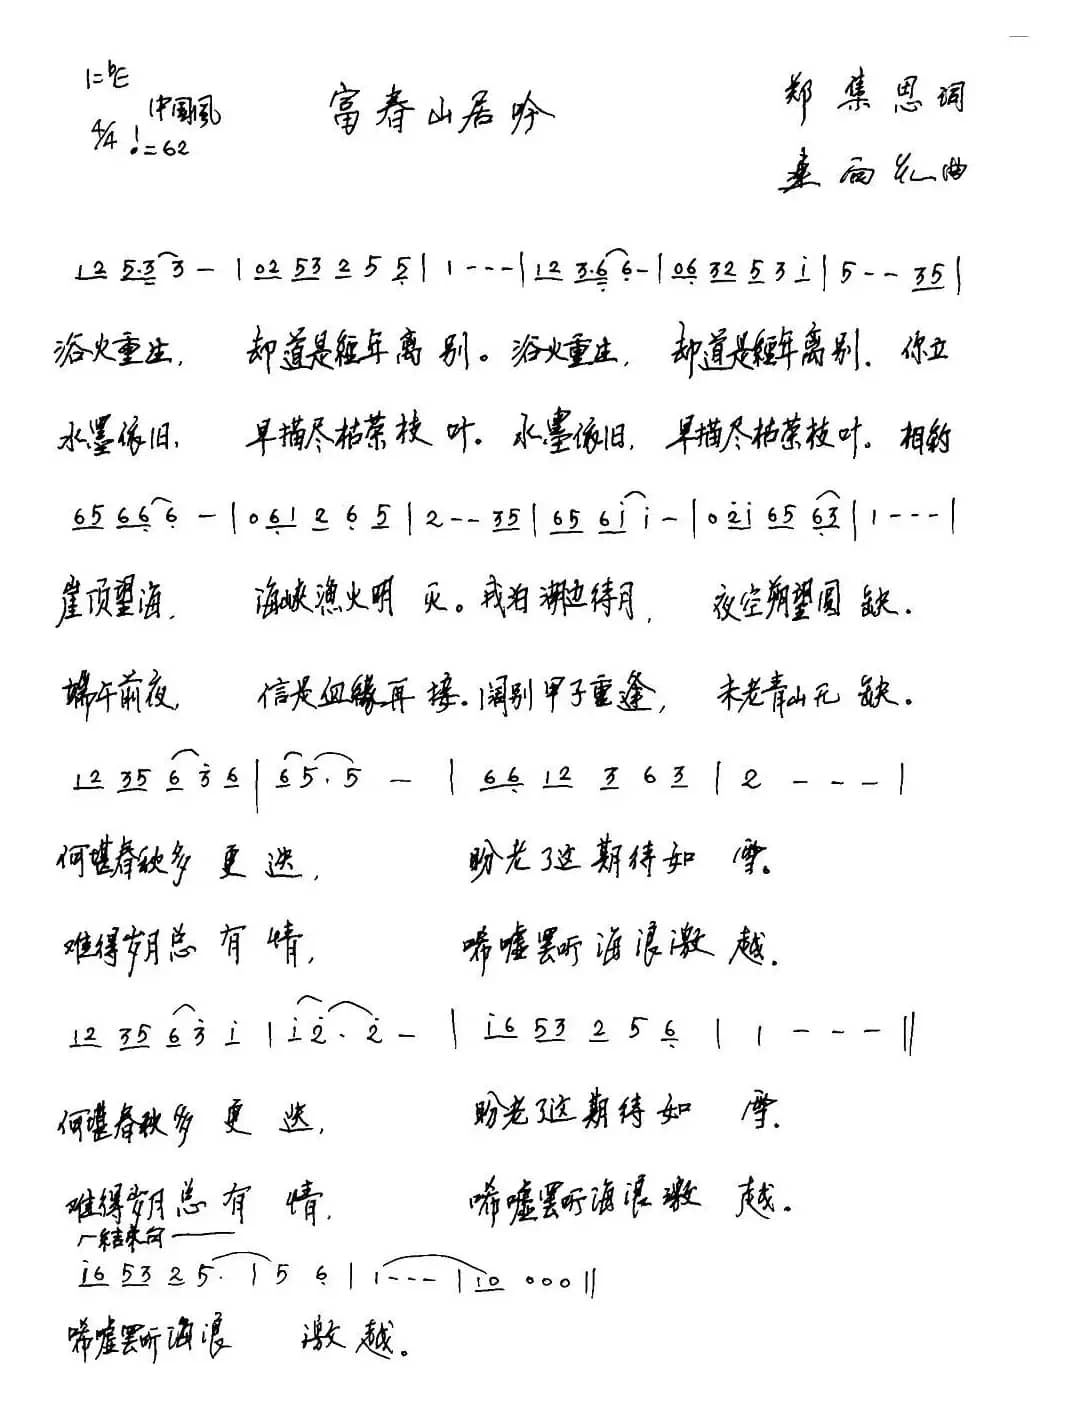 1=♭E
中国风
4/4 ♩=62
富春山居吟
郑集思词
桑雨红曲
12 5·3 3 - | 02 53 2 5 5 | 1 - - - | 12 3·6 6 - | 06 32 5 3 i | 5 - - 35 |
浴火重生, 却道是經年离别。浴火重生, 却道是經年离别. 你立
水墨依旧, 早描尽枯荣枝叶。水墨依旧, 早描尽枯荣枝叶。相约
65 66 6 - | 0 61 2 6 5 | 2 - - 35 | 65 6i i - | 0 2i 65 63 | 1 - - - |
崖顶望海, 海峡渔火明灭。我泊湖边待月, 夜空朔望圆缺.
端午前夜, 信是血緣再接.阔别甲子重逢, 未老青山无缺。
12 35 6 3 6 | 6 5· 5 - | 66 12 3 6 3 | 2 - - - |
何堪春秋多更迭, 盼老了这期待如雪.
难得岁月总有情, 唏嘘罢听海浪激越.
12 35 6 3 i | i 2· 2 - | i6 53 2 5 6 | 1 - - - ||
何堪春秋多更迭, 盼老了这期待如雪.
难得岁月总有情, 唏嘘罢听海浪激越。
结束句
i6 53 2 5· | 5 6 | 1 - - - | 10 000 ||
唏嘘罢听海浪 激越。